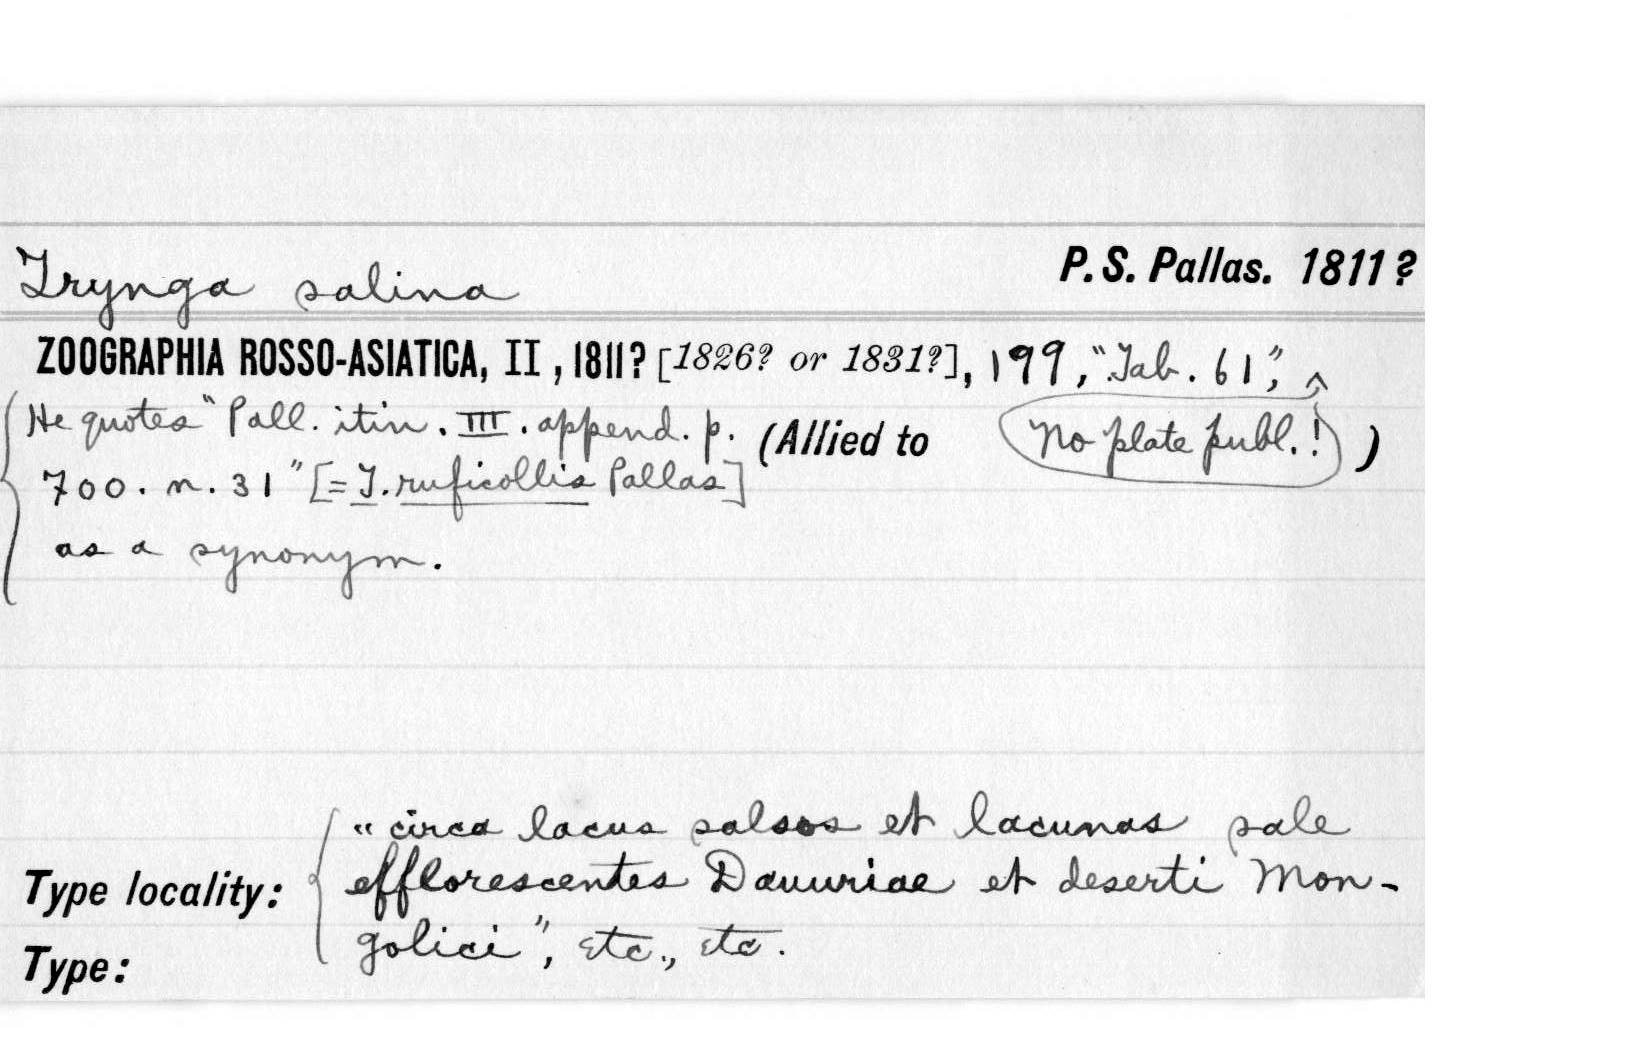 Trynga salina
P. S. Pallas. 1811?
ZOOGRAPHIA ROSSO-ASIATICA, II, 1811? [1826? or 1831?], 199, "Tab. 61",
He quotes "Pall. itin. III. append. p.
(Allied to No plate publ.! )
700. n. 31" [= T. ruficollis Pallas]
as a synonym.
"circa lacus salsos et lacunas sale
Type locality: efflorescentes Dauuriae et deserti Mon-
golici", etc., etc.
Type: